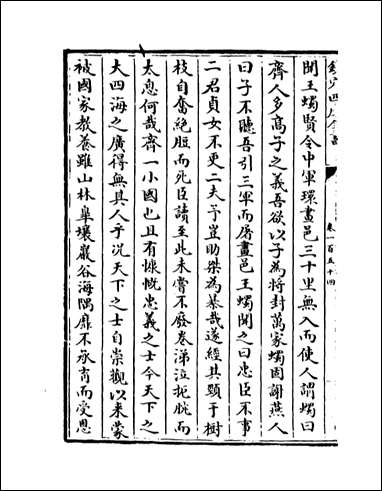 欽定四庫全書
卷一百五十四
聞王蠋賢令中軍環畫邑三十里無入而使人謂蠋曰
齊人多高子之義吾欲以子為將封萬家蠋固謝燕人
曰子不聽吾引三軍而屠畫邑王蠋聞之曰忠臣不事
二君貞女不更二夫予豈助桀為暴哉遂經其頸于樹
枝自奮絶脰而死臣讀至此未嘗不廢卷涕泣扼腕而
太息何哉齊一小國也且有慷慨忠義之士今天下之
大四海之廣得無其人乎况天下之士自崇觀以来蒙
被國家教養雖山林臯壤巖谷海隅靡不承育而受恩